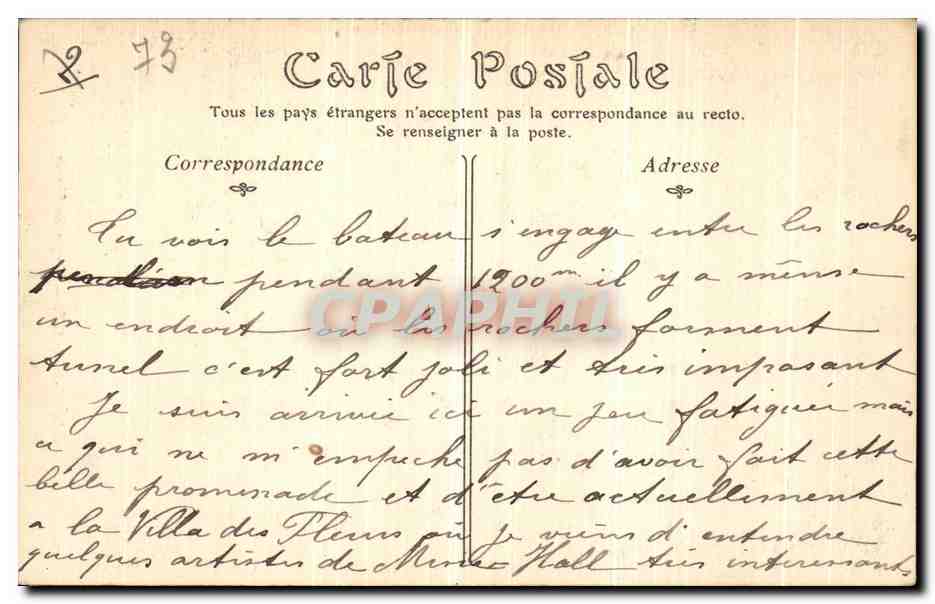 2 73
Carte Postale
Tous les pays étrangers n'acceptent pas la correspondance au recto.
Se renseigner à la poste.
Correspondance
Adresse
Tu vois le bateau s'engage entre les rochers
pendant 1200m il y a même
un endroit où les rochers forment
tunel c'est fort joli et très imposant
Je suis arrivée ici un peu fatiguée mais
ce qui ne m'empeche pas d'avoir fait cette
belle promenade et d'être actuellement
a la Villa des Fleurs où je viens d'entendre
quelques artistes de Music-Hall très interessants
CPAPHIL